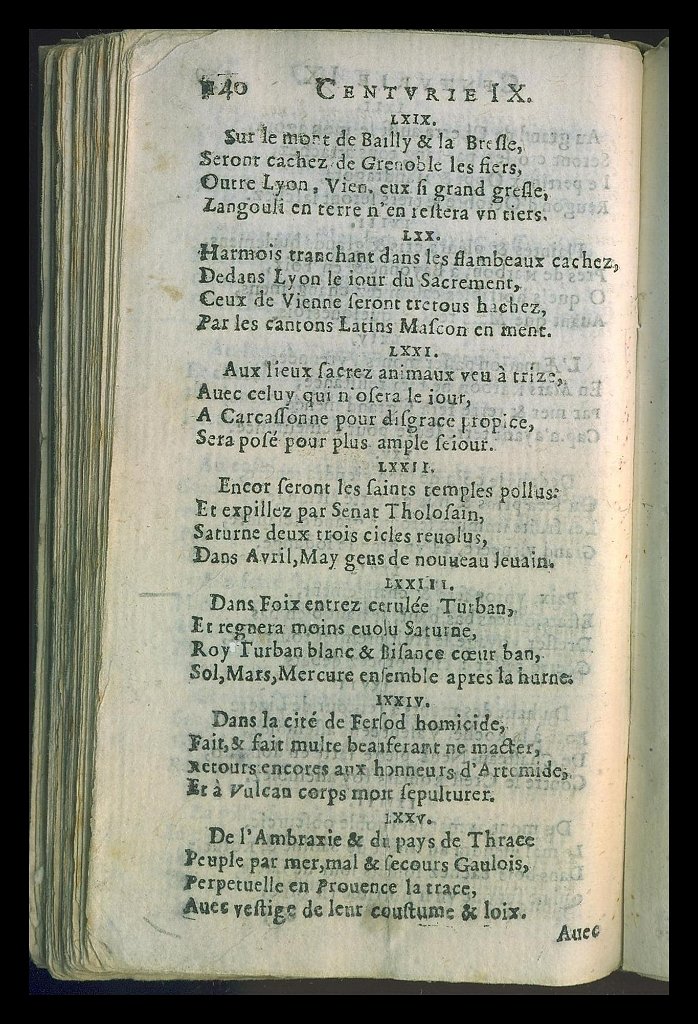 140 CENTVRIE IX.
LXIX.
Sur le mont de Bailly & la Bresle,
Seront cachez de Grenoble les fiers,
Outre Lyon, Vien. eux si grand gresle,
Langoult en terre n'en restera vn tiers.
LXX.
Harmois tranchant dans les flambeaux cachez,
Dedans Lyon le iour du Sacrement,
Ceux de Vienne seront tretous hachez,
Par les cantons Latins Mascon en ment.
LXXI.
Aux lieux sacrez animaux veu à trize,
Auec celuy qui n'osera le iour,
A Carcassonne pour disgrace propice,
Sera posé pour plus ample seiour.
LXXII.
Encor seront les saints temples pollus:
Et expillez par Senat Tholosain,
Saturne deux trois cicles reuolus,
Dans Avril, May gens de nouueau leuain.
LXXIII.
Dans Foix entrez cerulée Turban,
Et regnera moins euolu Saturne,
Roy Turban blanc & Bisance cœur ban,
Sol, Mars, Mercure ensemble apres la hurne.
LXXIV.
Dans la cité de Fersod homicide,
Fait, & fait multe beauferant ne macter,
Retours encores aux honneurs d'Artemide,
Et à Vulcan corps mort sepulturer.
LXXV.
De l'Ambraxie & du pays de Thrace
Peuple par mer, mal & secours Gaulois,
Perpetuelle en Prouence la trace,
Auec vestige de leur coustume & loix.
Auec